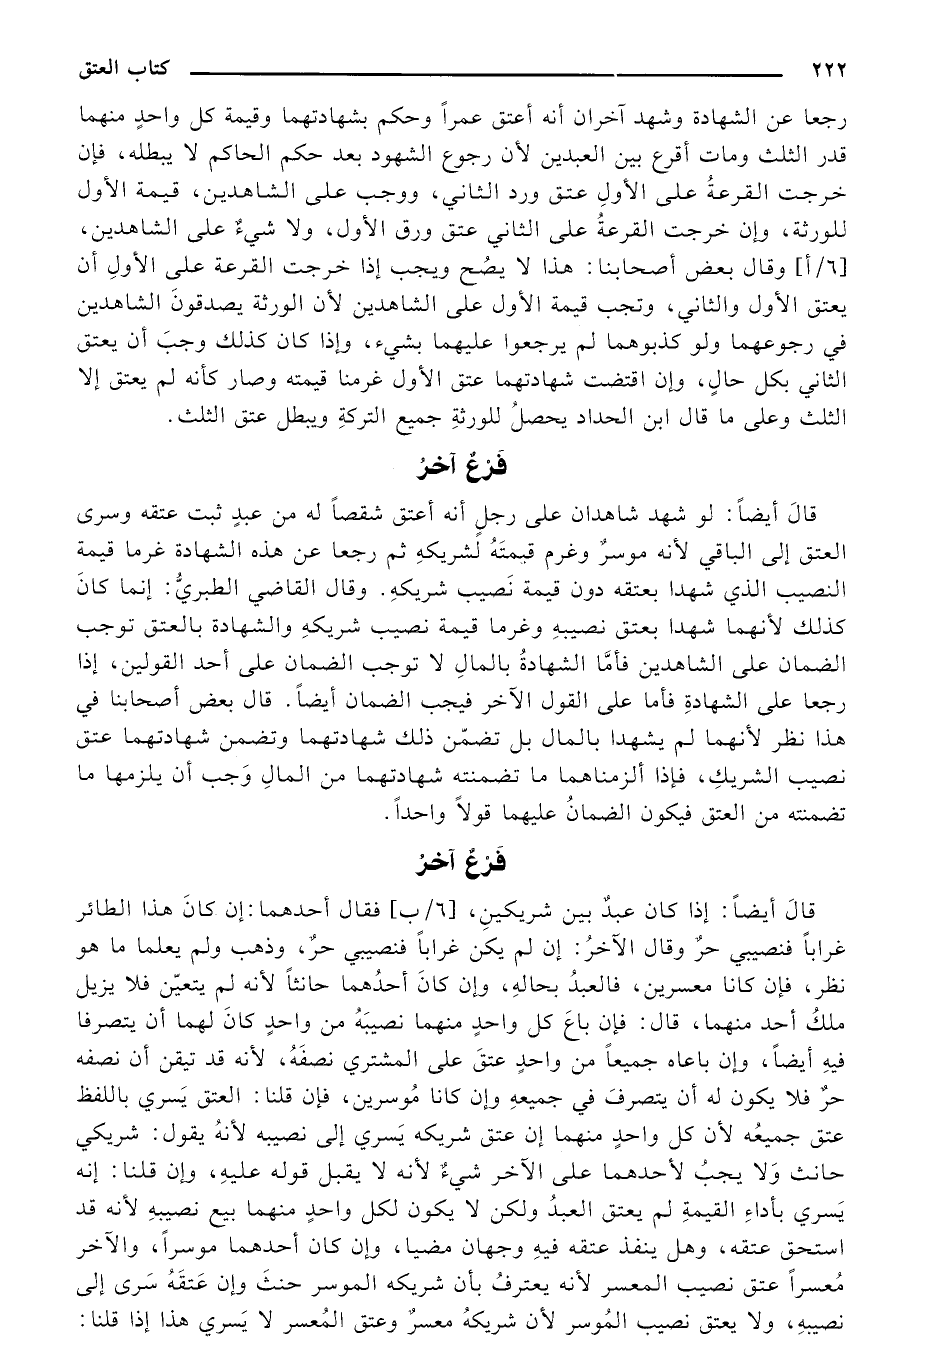 ٢٢٢ كتاب العتق
رجعا عن الشهادة وشهد آخران أنه أعتق عمراً وحكم بشهادتهما وقيمة كل واحدٍ منهما
قدر الثلث ومات أقرع بين العبدين لأن رجوع الشهود بعد حكم الحاكم لا يبطله، فإن
خرجت القرعةُ على الأولِ عتق ورد الثاني، ووجب على الشاهدين، قيمة الأول
للورثة، وإن خرجت القرعةُ على الثاني عتق ورق الأول، ولا شيءٌ على الشاهدين،
[٦/أ] وقال بعض أصحابنا: هذا لا يصُح ويجب إذا خرجت القرعة على الأولِ أن
يعتق الأول والثاني، وتجب قيمة الأول على الشاهدين لأن الورثة يصدقونَ الشاهدين
في رجوعهما ولو كذبوهما لم يرجعوا عليهما بشيء، وإذا كان كذلك وجبَ أن يعتق
الثاني بكل حالٍ، وإن اقتضت شهادتهما عتق الأول غرمنا قيمته وصار كأنه لم يعتق إلا
الثلث وعلى ما قال ابن الحداد يحصلُ للورثةِ جميع التركةِ ويبطل عتق الثلث.
فَرْعٌ آخرُ
قالَ أيضاً: لو شهد شاهدان على رجلٍ أنه أعتق شقصاً له من عبدٍ ثبت عتقه وسرى
العتق إلى الباقي لأنه موسرٌ وغرم قيمتَهُ لشريكهِ ثم رجعا عن هذه الشهادة غرما قيمة
النصيب الذي شهدا بعتقه دون قيمة نَصيب شريكهِ. وقال القاضي الطبريُّ: إنما كانَ
كذلك لأنهما شهدا بعتق نصيبهِ وغرما قيمة نصيب شريكهِ والشهادة بالعتق توجب
الضمان على الشاهدين فأمَّا الشهادةُ بالمالِ لا توجب الضمان على أحد القولين، إذا
رجعا على الشهادةِ فأما على القول الآخر فيجب الضمان أيضاً. قال بعض أصحابنا في
هذا نظر لأنهما لم يشهدا بالمال بل تضمّن ذلك شهادتهما وتضمن شهادتهما عتق
نصيب الشريكِ، فإذا ألزمناهما ما تضمنته شهادتهما من المالِ وَجب أن يلزمها ما
تضمنته من العتق فيكون الضمانُ عليهما قولاً واحداً.
فَرْعٌ آخرُ
قالَ أيضاً: إذا كان عبدٌ بين شريكينِ، [٦/ب] فقال أحدهما: إن كانَ هذا الطائر
غراباً فنصيبي حرٌ وقال الآخرُ: إن لم يكن غراباً فنصيبي حرٌ، وذهب ولم يعلما ما هو
نظر، فإن كانا معسرين، فالعبدُ بحالهِ، وإن كانَ أحدُهما حانثاً لأنه لم يتعيّن فلا يزيل
ملكُ أحد منهما، قال: فإن باعَ كل واحدٍ منهما نصيبَهُ من واحدٍ كانَ لهما أن يتصرفا
فيهِ أيضاً، وإن باعاه جميعاً من واحدٍ عتقَ على المشتري نصفَهُ، لأنه قد تيقن أن نصفه
حرٌ فلا يكون له أن يتصرفَ في جميعهِ وإن كانا مُوسرين، فإن قلنا: العتق يَسري باللفظ
عتق جميعُه لأن كل واحدٍ منهما إن عتق شريكه يَسري إلى نصيبه لأنهُ يقول: شريكي
حانث وَلا يجبُ لأحدهما على الآخر شيءٌ لأنه لا يقبل قوله عليهِ، وإن قلنا: إنه
يَسري بأداءِ القيمةِ لم يعتق العبدُ ولكن لا يكون لكل واحدٍ منهما بيع نصيبهِ لأنه قد
استحق عتقه، وهل ينفذ عتقه فيهِ وجهان مضيا، وإن كان أحدهما موسراً، والآخر
مُعسراً عتق نصيب المعسر لأنه يعترفُ بأن شريكه الموسر حنثَ وإن عَتقَهُ سَرى إلى
نصيبهِ، ولا يعتق نصيب المُوسر لأن شريكهُ معسرٌ وعتق المُعسر لا يَسري هذا إذا قلنا: